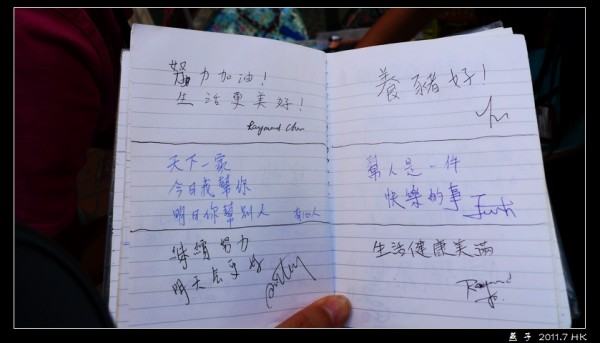 努力加油！
生活更美好！
Raymond Chan
天下一家
今日我幫你
明日你幫別人
持續努力
明天長更好
養豬好！
幫人是一件
快樂的事
生活健康美滿
Raymond
燕子 2011.7 HK